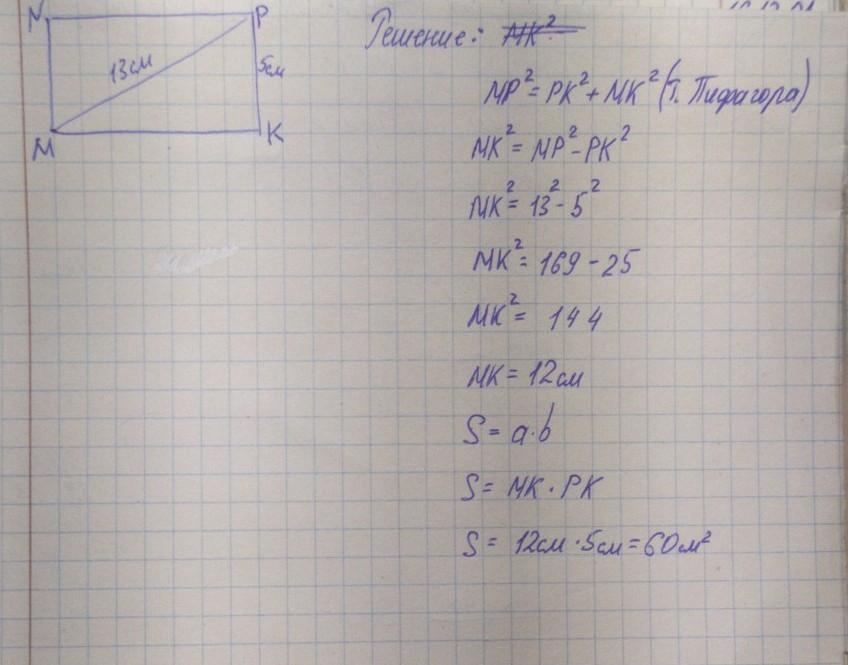 N P
13см
5см
M K
Решение: MK²
MP² = PK² + MK² (Т. Пифагора)
MK² = MP² - PK²
MK² = 13² - 5²
MK² = 169 - 25
MK² = 144
MK = 12см
S = a·b
S = MK · PK
S = 12см · 5см = 60см²